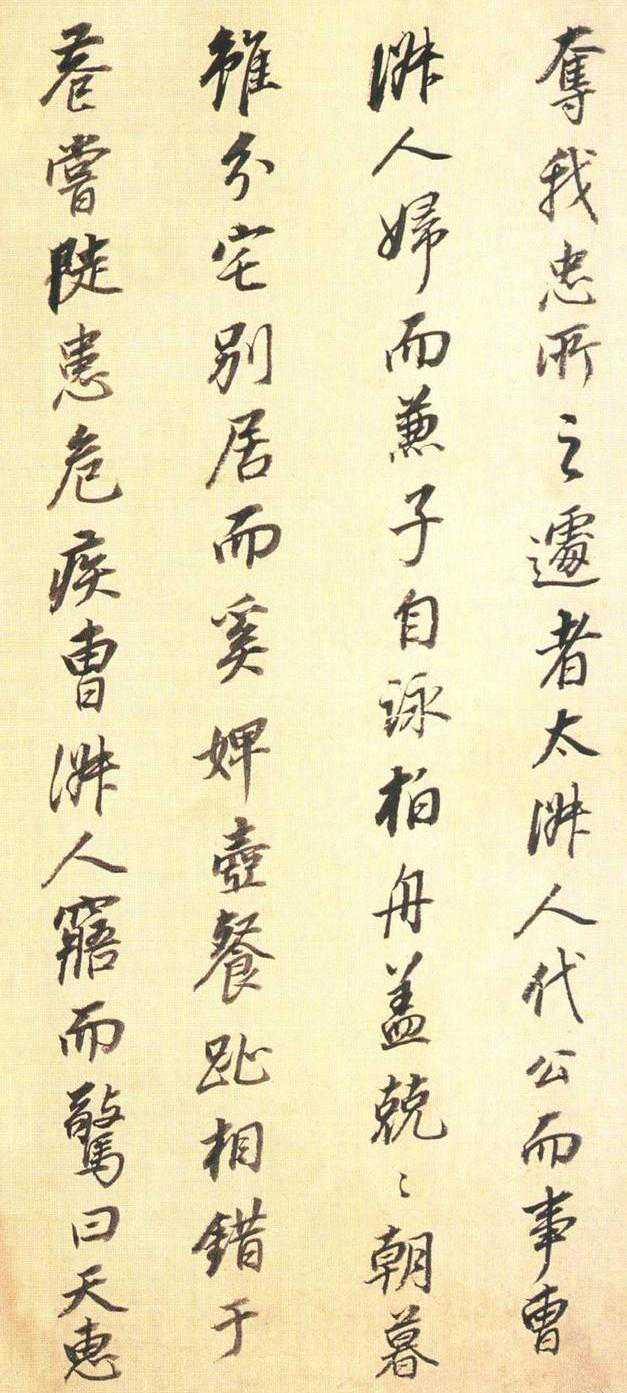 奪我忠所之遽者太淑人代公而事曹
淑人婦而兼子自詠柏舟盖兢〻朝暮
雖分宅別居而奚婢壺餐趾相錯于
巷嘗陡患危疾曹淑人寤而驚曰天惠